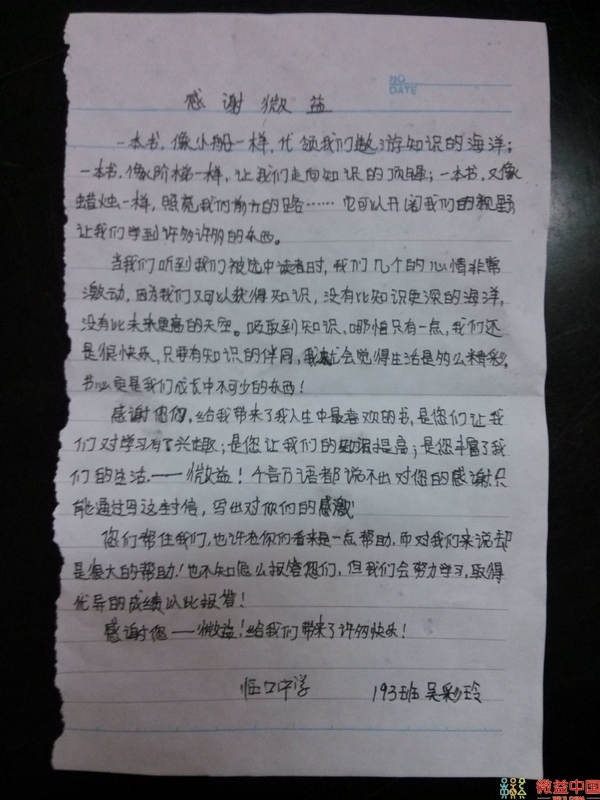 NO
DATE
感谢微益
一本书,像小船一样,代领我们遨游知识的海洋;
一本书,像阶梯一样,让我们走向知识的顶峰;一本书,又像
蜡烛一样,照亮我们前方的路……也可以开阔我们的视野,
让我们学到许多许多的东西。
当我们听到我们被选中读者时,我们几个的心情非常
激动,因为我们又可以获得知识,没有比知识更深的海洋,
没有比未来更高的天空。吸取到知识、哪怕只有一点,我们还
是很快乐,只要有知识的伴同,我就会觉得生活是的么精彩,
书必更是我们成长中不可少的东西!
感谢您们,给我带来了我人生中最喜欢的书,是您们让我
们对学习有了兴趣;是您让我们的提高;是您丰富了我
们的生活.——微益!千言万语都说不出对您的感谢只
能通过写这封信,写出对你们的感激!
您们帮住我们,也许在你们看来是一点帮助,而对我们来说却
是很大的帮助!也不知怎么报答您们,但我们会努力学习,取得
优异的成绩以此报答!
感谢您——微益!给我们带来了许多快乐!
临口中学 193班吴彩玲
微益中国